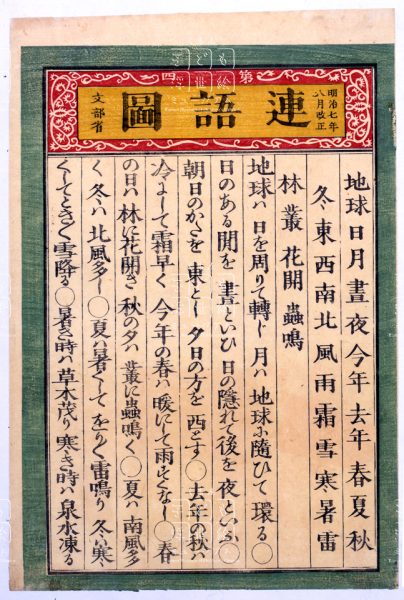 第四
明治七年
八月改正
連語圖
文部省
地球 日 月 晝 夜 今年 去年 春 夏 秋
冬 東 西 南 北 風 雨 霜 雪 寒 暑 雷
林 叢 花開 蟲鳴
地球ハ 日を 周りて 轉じ 月ハ 地球に 隨ひて 環る〇
日のある 間を 晝といひ 日の 隠れて 後を 夜といふ〇
朝日のかたを 東とし 夕日の方を 西とす〇去年の秋ハ
冷にして 霜早く 今年の春ハ 暖にて 雨すくなし〇春
の日ハ 林に花開き 秋の夕ハ 叢に蟲鳴く〇夏ハ 南風多
く 冬ハ 北風多し〇夏ハ暑くして をり〱雷鳴り 冬ハ寒
くして とき〲雪降る〇暑き時ハ 草木茂り 寒き時ハ 泉水凍る